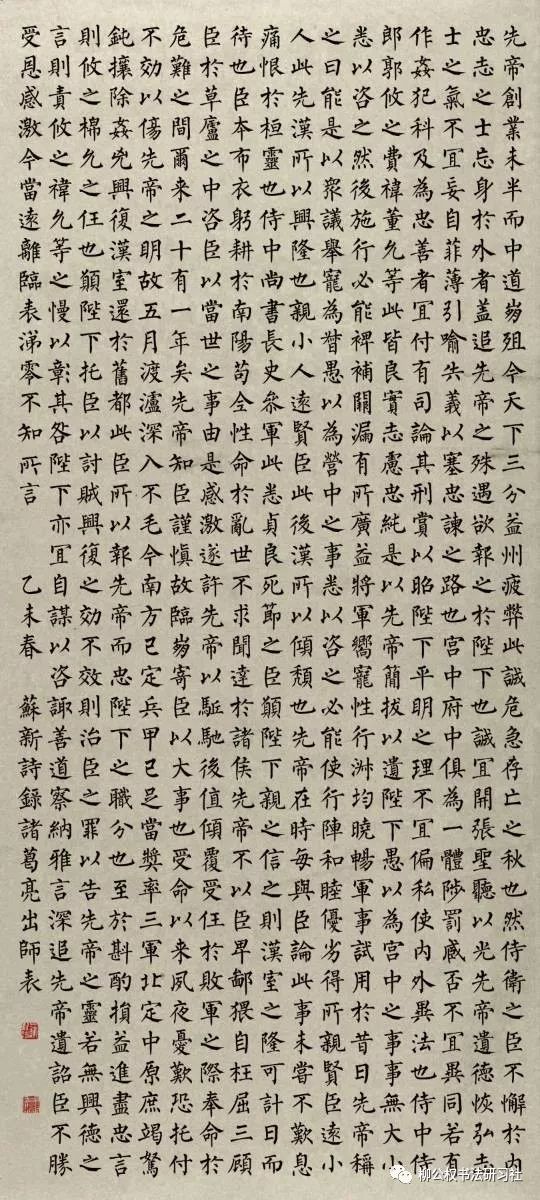 先帝創業未半而中道崩殂今天下三分益州疲弊此誠危急存亡之秋也然侍衛之臣不懈於内
忠志之士忘身於外者盖追先帝之殊遇欲報之於陛下也誠宜開張聖聽以光先帝遺德恢弘志
士之氣不宜妄自菲薄引喻失義以塞忠諫之路也宮中府中俱為一體陟罰臧否不宜異同若有
作姦犯科及為忠善者宜付有司論其刑賞以昭陛下平明之理不宜偏私使内外異法也侍中侍
郎郭攸之費禕董允等此皆良實志慮忠純是以先帝簡拔以遺陛下愚以為宮中之事事無大小
悉以咨之然後施行必能裨補闕漏有所廣益將軍嚮寵性行淑均曉暢軍事試用於昔日先帝稱
之曰能是以衆議舉寵為督愚以為營中之事悉以咨之必能使行陣和睦優劣得所親賢臣遠小
人此先漢所以興隆也親小人遠賢臣此後漢所以傾頹也先帝在時每與臣論此事未嘗不歎息
痛恨於桓靈也侍中尚書長史參軍此悉貞良死節之臣願陛下親之信之則漢室之隆可計日而
待也臣本布衣躬耕於南陽苟全性命於亂世不求聞達於諸侯先帝不以臣卑鄙猥自枉屈三顧
臣於草廬之中咨臣以當世之事由是感激遂許先帝以駈馳後值傾覆受任於敗軍之際奉命於
危難之間爾来二十有一年矣先帝知臣謹慎故臨崩寄臣以大事也受命以来夙夜憂歎恐托付
不効以傷先帝之明故五月渡瀘深入不毛今南方已定兵甲已足當獎率三軍北定中原庶竭駑
鈍攘除姦兇興復漢室還於舊都此臣所以報先帝而忠陛下之職分也至於斟酌損益進盡忠言
則攸之禕允之任也願陛下托臣以討賊興復之効不效則治臣之罪以告先帝之靈若無興德之
言則責攸之禕允等之慢以彰其咎陛下亦宜自謀以咨諏善道察納雅言深追先帝遺詔臣不勝
受恩感激今當遠離臨表涕零不知所言 乙未春 蘇新詩錄諸葛亮出師表
柳公权书法研习社